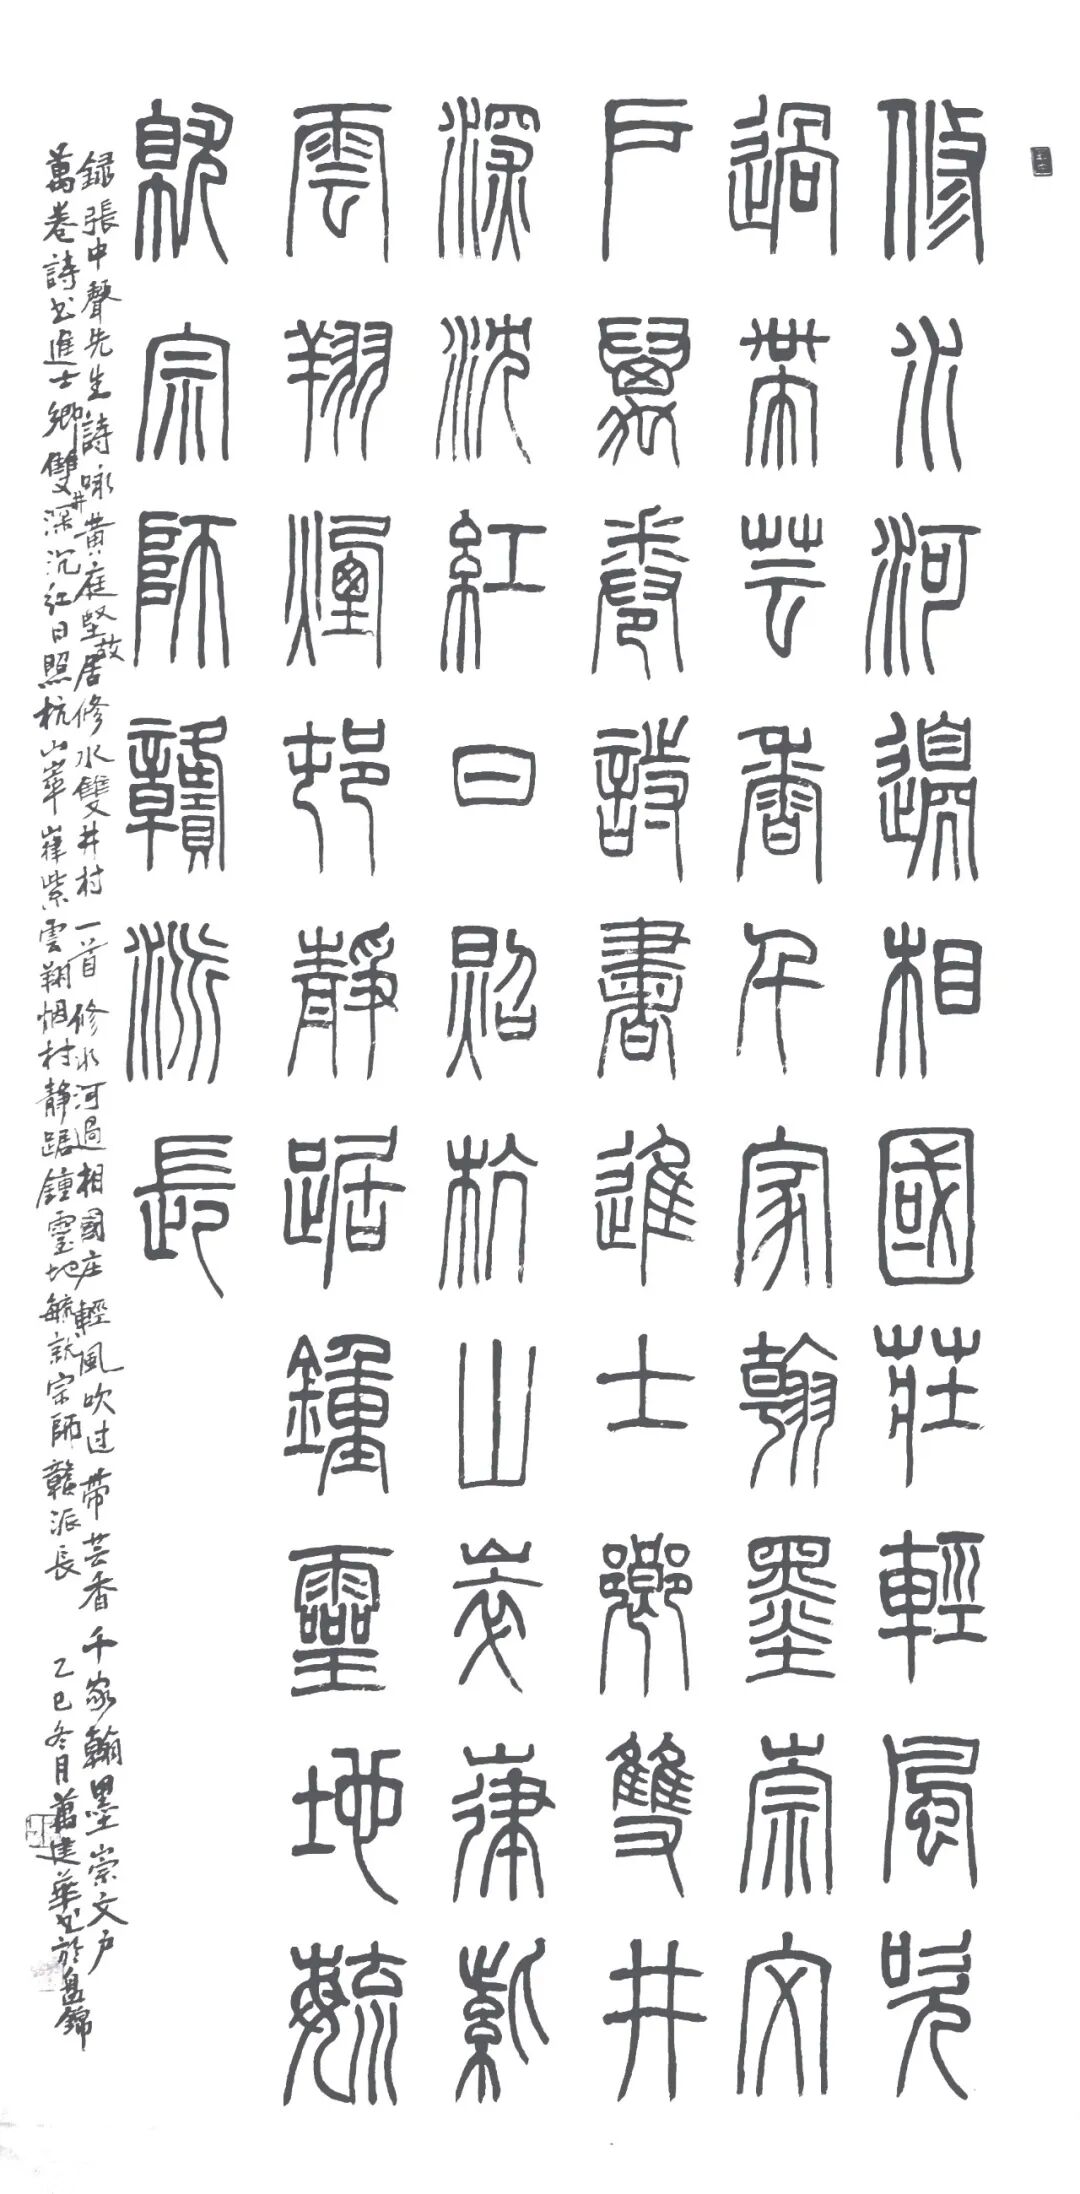 修水河邊相國莊輕風吹
過帶芸香千家翰墨崇文
戶萬卷詩書進士鄉雙井
深沈紅日照杭山崒嵂紫
雲翔煙邨靜踞鐘靈地毓
就宗師贛派長
録張中聲先生詩咏黄庭堅故居修水雙井村一首修水河過相國庄輕風吹过带芸香千家翰墨崇文户
萬卷詩书進士鄉雙井深沉红日照杭山崒嵂紫雲翔烟村静踞鍾靈地毓就宗師贛派長 乙巳冬月萬建華书於盘錦